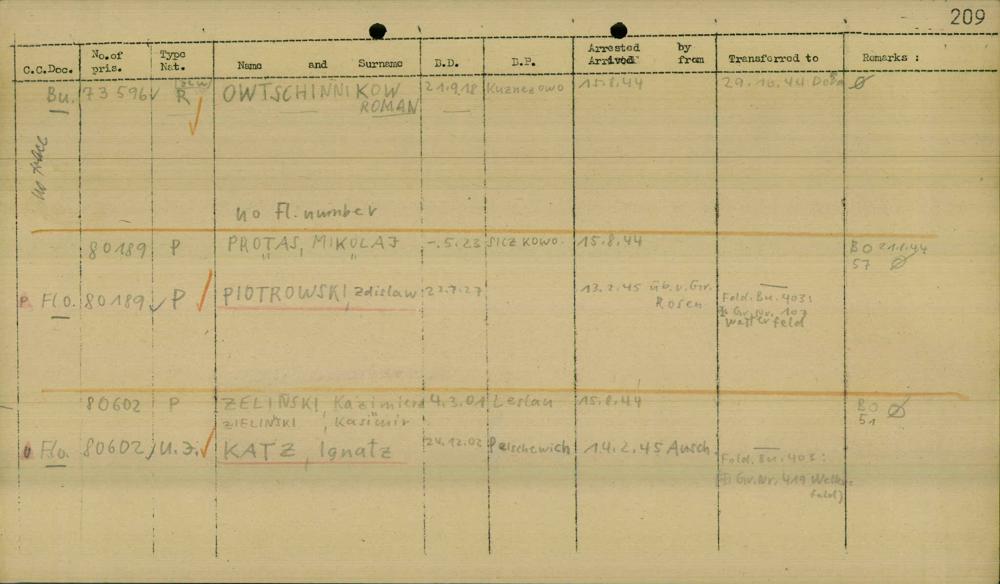 209
C.C.Doc. No.of pris. Type Nat. Name and Surname B.D. B.P. Arrested Arrived by from Transferred to Remarks :
Bu. 73 596 R OWTSCHINNIKOW 21.9.18 Kusnezowo 15.8.44 29.10.44 Dora Ø
ROMAN
no trace
no Fl. number
80189 P PROTAS, MIKOLAJ -.5.23 SICZKOWO. 15.8.44 BO 21.1.44
57 Ø
P. Flo. 80189 P PIOTROWSKI, Zdislaw 22.7.27 13.2.45 üb. v. Gr. Rosen Fold. Bu. 403:
Gr. Nr. 107
Wetterfeld
80602 P ZELIŃSKI, Kazimierz 4.3.01 Leslau 15.8.44 BO Ø
ZIELIŃSKI, Kasimir 51
U Flo. 80602 U.J. KATZ, Ignatz 24.12.02 Pelschewich 14.2.45 Ausch. Fold. Bu. 403:
Gr. Nr. 419 Wetterfeld)